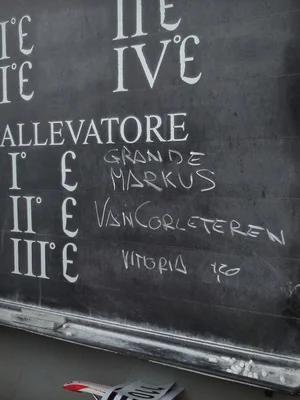 I° £ II £
I° £ IV° £
ALLEVATORE
I° £ GRANDE
MARKUS
II° £ VANCORLETEREN
III° £ VITORIA